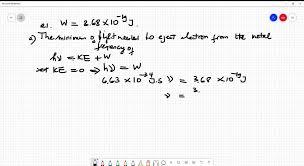 21. W = 3.68 × 10⁻¹⁹ J.
a) The minimum of light needed to eject electron from the metal
frequency of
hν = KE + W
KE = 0 ⇒ hν = W
6.63 × 10⁻³⁴ J.s ν = 3.68 × 10⁻¹⁹ J
ν = 3.